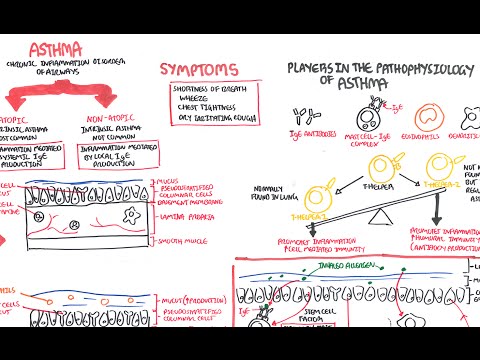 ASTHMA
CHRONIC INFLAMMATION DISORDER
OF AIRWAYS
ATOPIC
NON-ATOPIC
INTRINSIC ASTHMA
NOT COMMON
INFLAMMATION MEDIATED
BY LOCAL IgE
PRODUCTION
MOST COMMON
INFLAMMATION MEDIATED
SYSTEMIC IgE
PRODUCTION
SYMPTOMS
SHORTNESS OF BREATH
WHEEZE
CHEST TIGHTNESS
DRY IRRITATING COUGH
PLAYERS IN THE PATHOPHYSIOLOGY
OF ASTHMA
IgE
IgE ANTIBODIES
MAST CELL-IgE
COMPLEX
EOSINOPHILS
T-HELPER
T-HELPER-1
T-HELPER-2
NORMALLY
FOUND IN LUNG
NOT
BUT
ASTH
PROMOTES INFLAMMATION
CELL MEDIATED IMMUNITY
PROMOTES INFLAMMATION
HUMORAL IMMUNITY
(ANTIBODY PRODUCTION)
CELL
MUCUS
PSEUDOSTRATIFIED
COLUMNAR CELLS
BASEMENT MEMBRANE
LAMINA PROPRIA
SMOOTH MUSCLE
MUCUS (↑PRODUCTION)
PSEUDOSTRATIFIED
COLUMNAR CELLS
INHALED ALLERGEN
IgE
STEM CELL
FACTOR